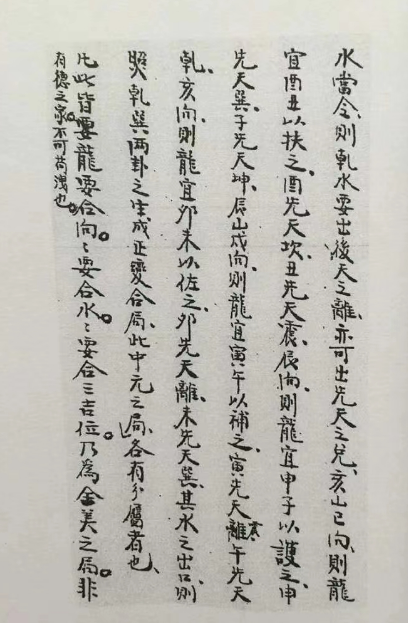 水當令、則乾水要出後天之離、亦可出先天之兌、亥山巳向、則龍
宜酉丑以扶之、酉先天坎、丑先天震、辰向、則龍宜申子以護之、申
先天巽、子先天坤、辰山戌向、則龍宜寅午以補之、寅先天離、午先天
乾、亥向、則龍宜卯未以佐之、卯先天離、未先天巽、其水之出口、則
照乾巽兩卦之生成正變合局、此中元之局、各有分屬者也、
凡此皆要龍要合向。々要合水。々要合三吉位。乃為金美之局。非
有德之家。不可苟洩也。